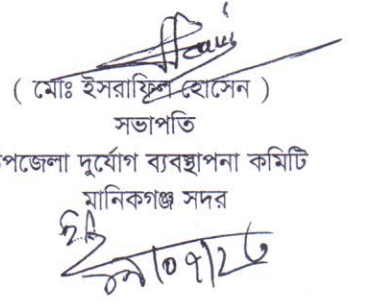 ( মোঃ ইসরাফিল হোসেন )
সভাপতি
পজেলা দুর্যোগ ব্যবস্থাপনা কমিটি
মানিকগঞ্জ সদর